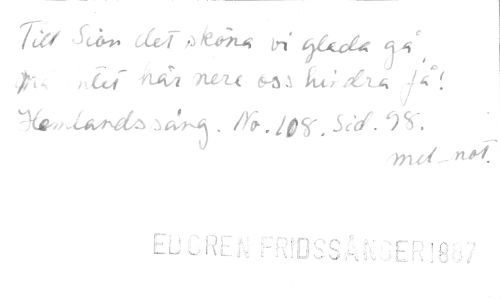 Till Sion det sköna vi glada gå,
må intet här nere oss hindra få!
Hemlandssång. No. 108. Sid. 98.
med not.
EDGREN FRIDSSÅNGER 1887